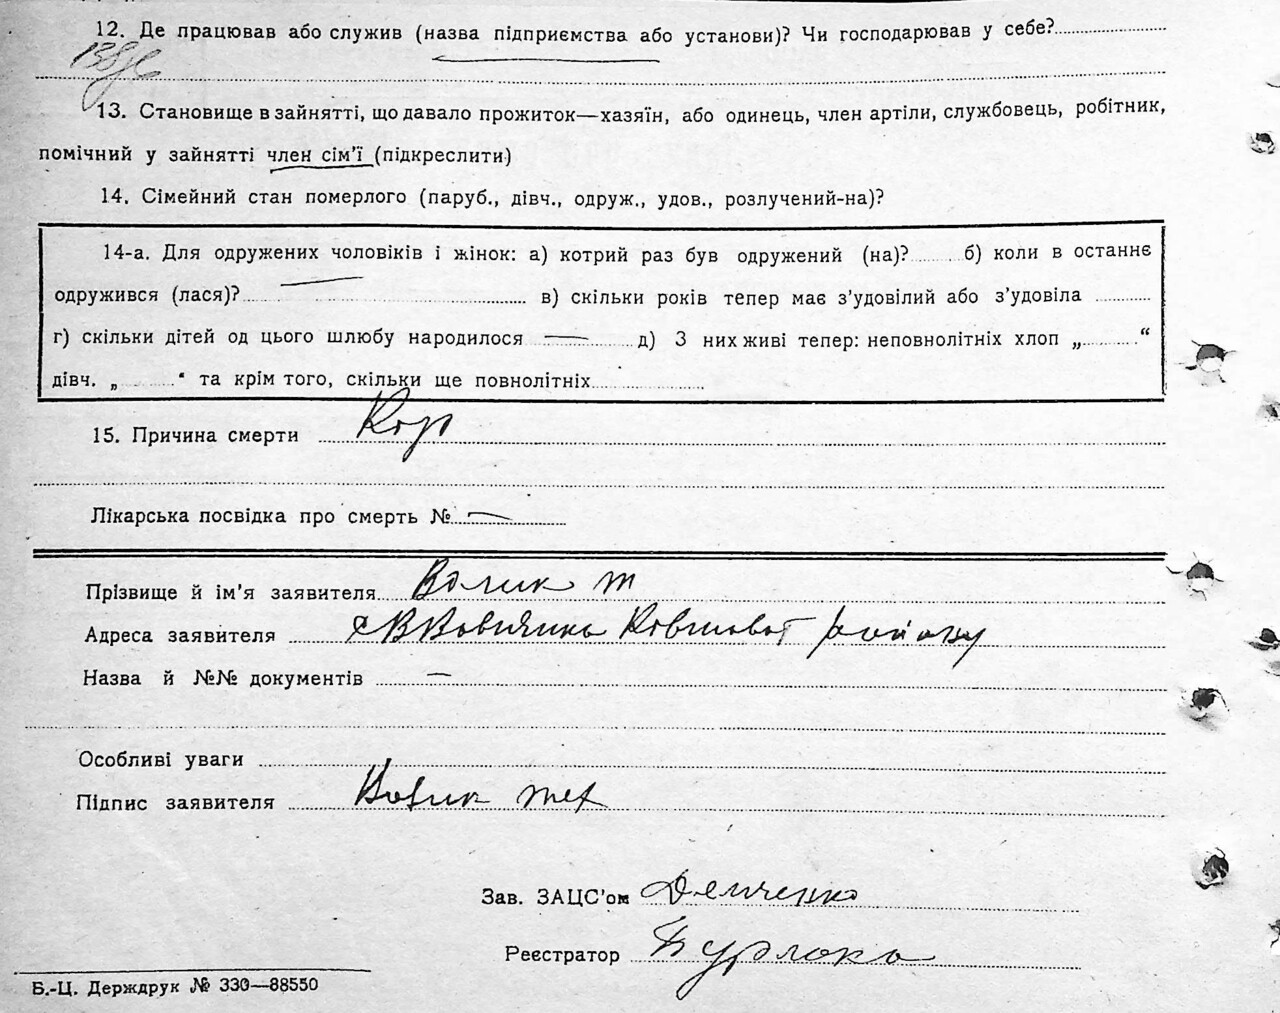 12. Де працював або служив (назва підприємства або установи)? Чи господарював у себе?
13. Становище в зайнятті, що давало прожиток—хазяїн, або одинець, член артіли, службовець, робітник,
помічний у зайнятті член сім'ї (підкреслити)
14. Сімейний стан померлого (паруб., дівч., одруж., удов., розлучений-на)?
14-а. Для одружених чоловіків і жінок: а) котрий раз був одружений (на)? б) коли в останнє
одружився (лася)? в) скільки років тепер має з'удовілий або з'удовіла
г) скільки дітей од цього шлюбу народилося — д) З них живі тепер: неповнолітніх хлоп „ “
дівч. „ “ та крім того, скільки ще повнолітніх
15. Причина смерти Кор
Лікарська посвідка про смерть № —
Прізвище й ім'я заявителя Волик т
Адреса заявителя району
Назва й №№ документів —
Особливі уваги
Підпис заявителя Волик
Зав. ЗАЦС'ом Демченко
Реєстратор Бурлака
Б.-Ц. Держдрук № 330—88550